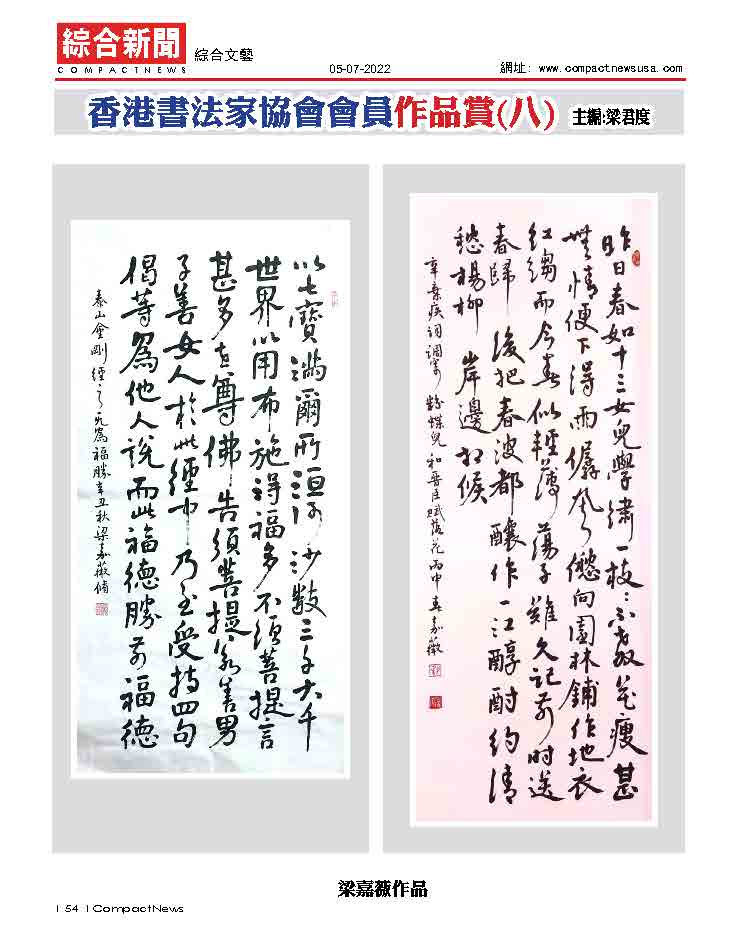 綜合新聞
COMPACTNEWS
綜合文藝
05-07-2022
網址: www.compactnewsusa.com
香港書法家協會會員作品賞(八) 主編:梁君度
以七寶滿爾所恒河沙數三千大千
世界以用布施得福多不須菩提言
甚多世尊佛告須菩提若善男
子善女人於此經中乃至受持四句
偈等爲他人說而此福德勝前福德
泰山金剛經之無爲福勝辛丑秋梁嘉薇脩
昨日春如十三女兒學繡一枝:不教花瘦甚
無情便下得雨僝風僽向園林鋪作地衣
紅縐而今春似輕薄蕩子難久記前時送
春歸後把春波都釀作一江醇酎約清
愁楊柳岸邊相候
辛棄疾詞調寄粉蝶兒和晉臣賦落花丙申春嘉薇
梁嘉薇作品
| 54 | CompactNews